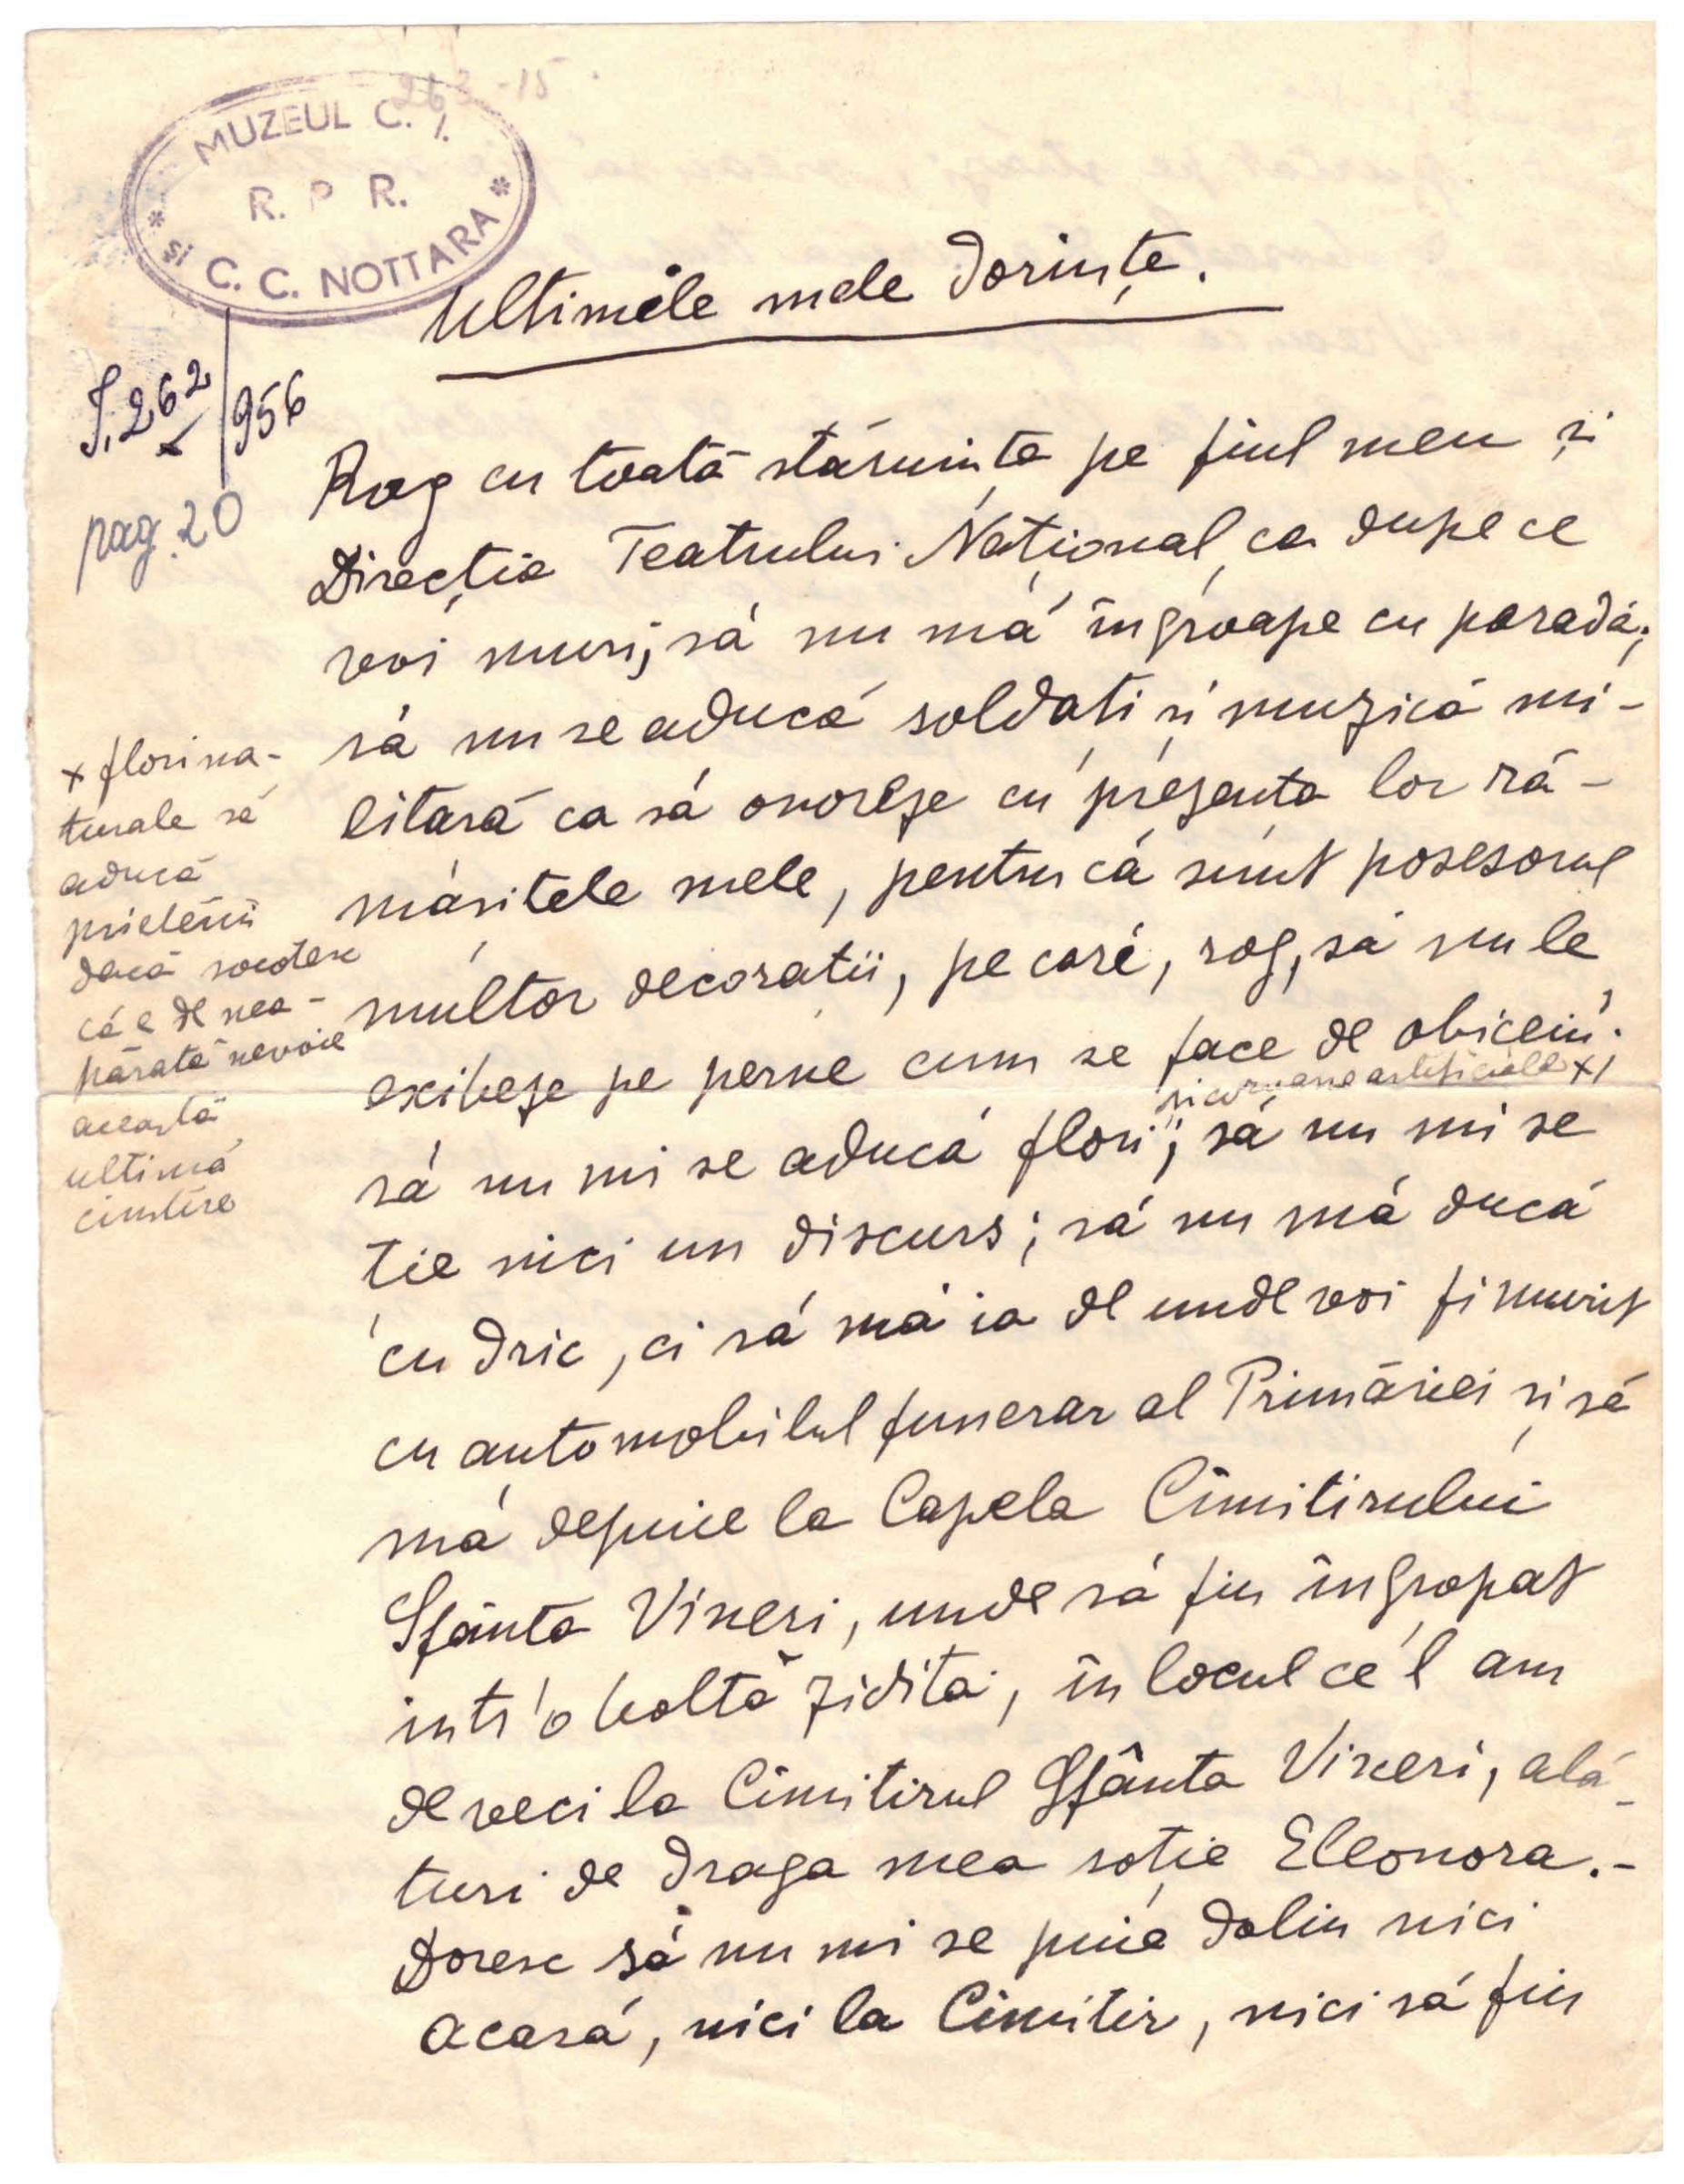 263-15
MUZEUL C. I.
R. P. R.
și C. C. NOTTARA
Ultimele mele dorințe.
I. 262/956
pag. 20
Rog cu toată stăruința pe fiul meu și
Direcția Teatrului Național, ca dupe ce
voi muri, să nu mă îngroape cu paradă;
să nu se aducă soldati și muzică mi-
litară ca să onoreze cu prezenta lor ră-
mășitele mele, pentru că sunt posesorul
multor decorații, pe care, rog, să nu le
exibeze pe perne cum se face de obiceiu.
și coroane artificiale x/
să nu mi se aducă flori"; să nu mi se
ție nici un discurs; să nu mă ducă
cu dric, ci să mă ia de unde voi fi murit
cu automobilul funerar al Primăriei și să
mă depuie la Capela Cimitirului
Sfânta Vineri, unde să fiu îngropat
intr'o boltă zidită, în locul ce'l am
de veci la Cimitirul Sfânta Vineri, ală-
turi de draga mea soție Eleonora.-
Doresc să nu mi se puie doliu nici
acasă, nici la Cimitir, nici să fiu
x flori na-
turale să
aducă
prietenii
dacă socotesc
că e de nea-
părată nevoie
această
ultimă
cinstire